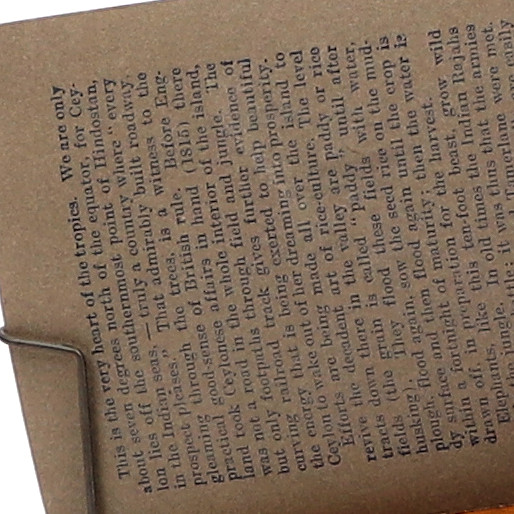 This is the very heart of the tropics. We are only
about seven degrees north of the equator, for Cey-
lon lies off the southernmost point of Hindostan,
in the Indian seas,—truly a country where "every
prospect pleases." That admirably built roadway,
gleaming through the trees, is a witness to the
practical good-sense of British rule. Before Eng-
land took Ceylonese affairs in hand (1815) there
was not a road in the whole interior of the island,
but only footpaths through field and jungle. The
curving railroad track gives further evidence of
the energy that is being exerted to help beautiful
Ceylon to wake out of her dreaming into prosperity.
Efforts are being made all over the island to
revive the decadent art of rice-culture. The level
tracts down there in the valley are paddy or rice
fields (the grain is called "paddy" until after
husking). They flood these fields with water,
plough, flood again, sow the seed rice on the mud-
dy surface and then flood again until the crop is
within a fortnight of maturity; then the water is
drawn off, in preparation for the harvest.
Elephants, like this ten-foot beast, grow wild
in the jungle. In old times the Indian Rajahs
it was thus that the armies
were met.
were easily